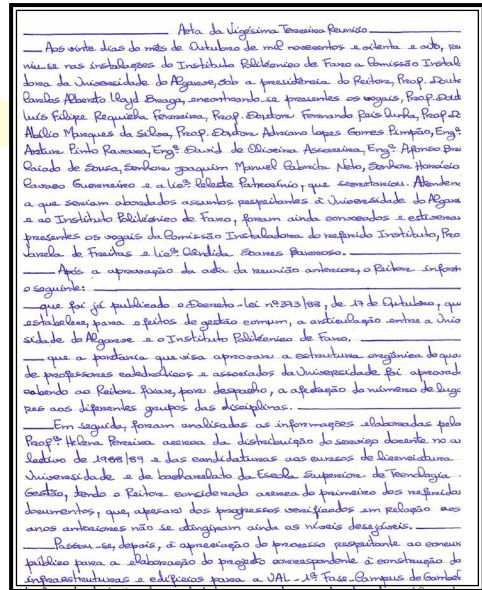 Acta da Vigésima Terceira Reunião
Aos vinte dias do mês de Outubro de mil novecentos e oitenta e oito, reu
niu-se nas instalações do Instituto Politécnico de Faro a Comissão Instal
dora da Universidade do Algarve, sob a presidência do Reitor, Prof. Douto
Carlos Alberto Lloyd Braga, encontrando-se presentes os vogais, Prof. Dout
Luís Filipe Requicha Ferreira, Prof. Doutor Fernando Pais Cunha, Prof. D
Abílio Marques da Silva, Prof. Doutor Adriano Lopes Gomes Pimpão, Engº
Artur Pinto Ravara, Engº David de Oliveira Assoreira, Engº Afonso Bra
Caiado de Sousa, Senhor Joaquim Manuel Cabrita Neto, Senhor Horácio
Cavaco Guerreiro e a licª Celeste Patrocínio, que secretariou. Atendeno
a que seriam abordados assuntos respeitantes à Universidade do Algarv
e ao Instituto Politécnico de Faro, foram ainda convocados e estivera
presentes os vogais da Comissão Instaladora do referido Instituto, Pro
Varela de Freitas e licª Cândida Soares Barroso.
Após a aprovação da acta da reunião anterior, o Reitor inform
o seguinte:
que foi já publicado o Decreto-Lei nº 373/88, de 17 de Outubro, qu
estabelece, para efeitos de gestão comum, a articulação entre a Univ
sidade do Algarve e o Instituto Politécnico de Faro.
que a portaria que visa aprovar a estrutura orgânica do qua
de professores catedráticos e associados da Universidade foi aprovad
cabendo ao Reitor fixar, por despacho, a afetação do número de luga
res aos diferentes grupos das disciplinas.
Em seguida, foram analisadas as informações elaboradas pela
Profª Helena Pereira acerca da distribuição do serviço docente no an
lectivo de 1988/89 e das candidaturas aos cursos de licenciatura
Universidade e de bacharelato da Escola Superior de Tecnologia
Gestão, tendo o Reitor considerado acerca do primeiro dos referidos
documentos, que, apesar dos progressos verificados em relação aos
anos anteriores não se atingiram ainda os níveis desejáveis.
Passou-se, depois, à apreciação do processo respeitante ao concur
público para a elaboração do projecto correspondente à construção da
infraestruturas e edifícios para a UAL - 1ª Fase - Campus de Gambel